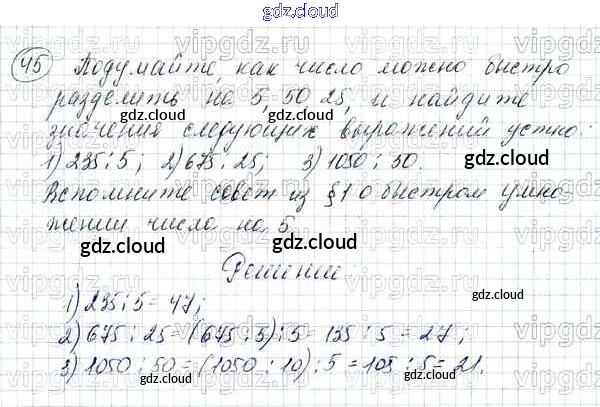 gdz.cloud
45 Подумайте, как число можно быстро
разделить на 5, 50, 25, и найдите
значения следующих выражений устно:
1) 235 : 5; 2) 675 : 25; 3) 1050 : 50.
Вспомните совет из § 1 о быстром умно-
жении числа на 5.
Решение
1) 235 : 5 = 47;
2) 675 : 25 = (675 : 5) : 5 = 135 : 5 = 27;
3) 1050 : 50 = (1050 : 10) : 5 = 105 : 5 = 21.
gdz.cloud